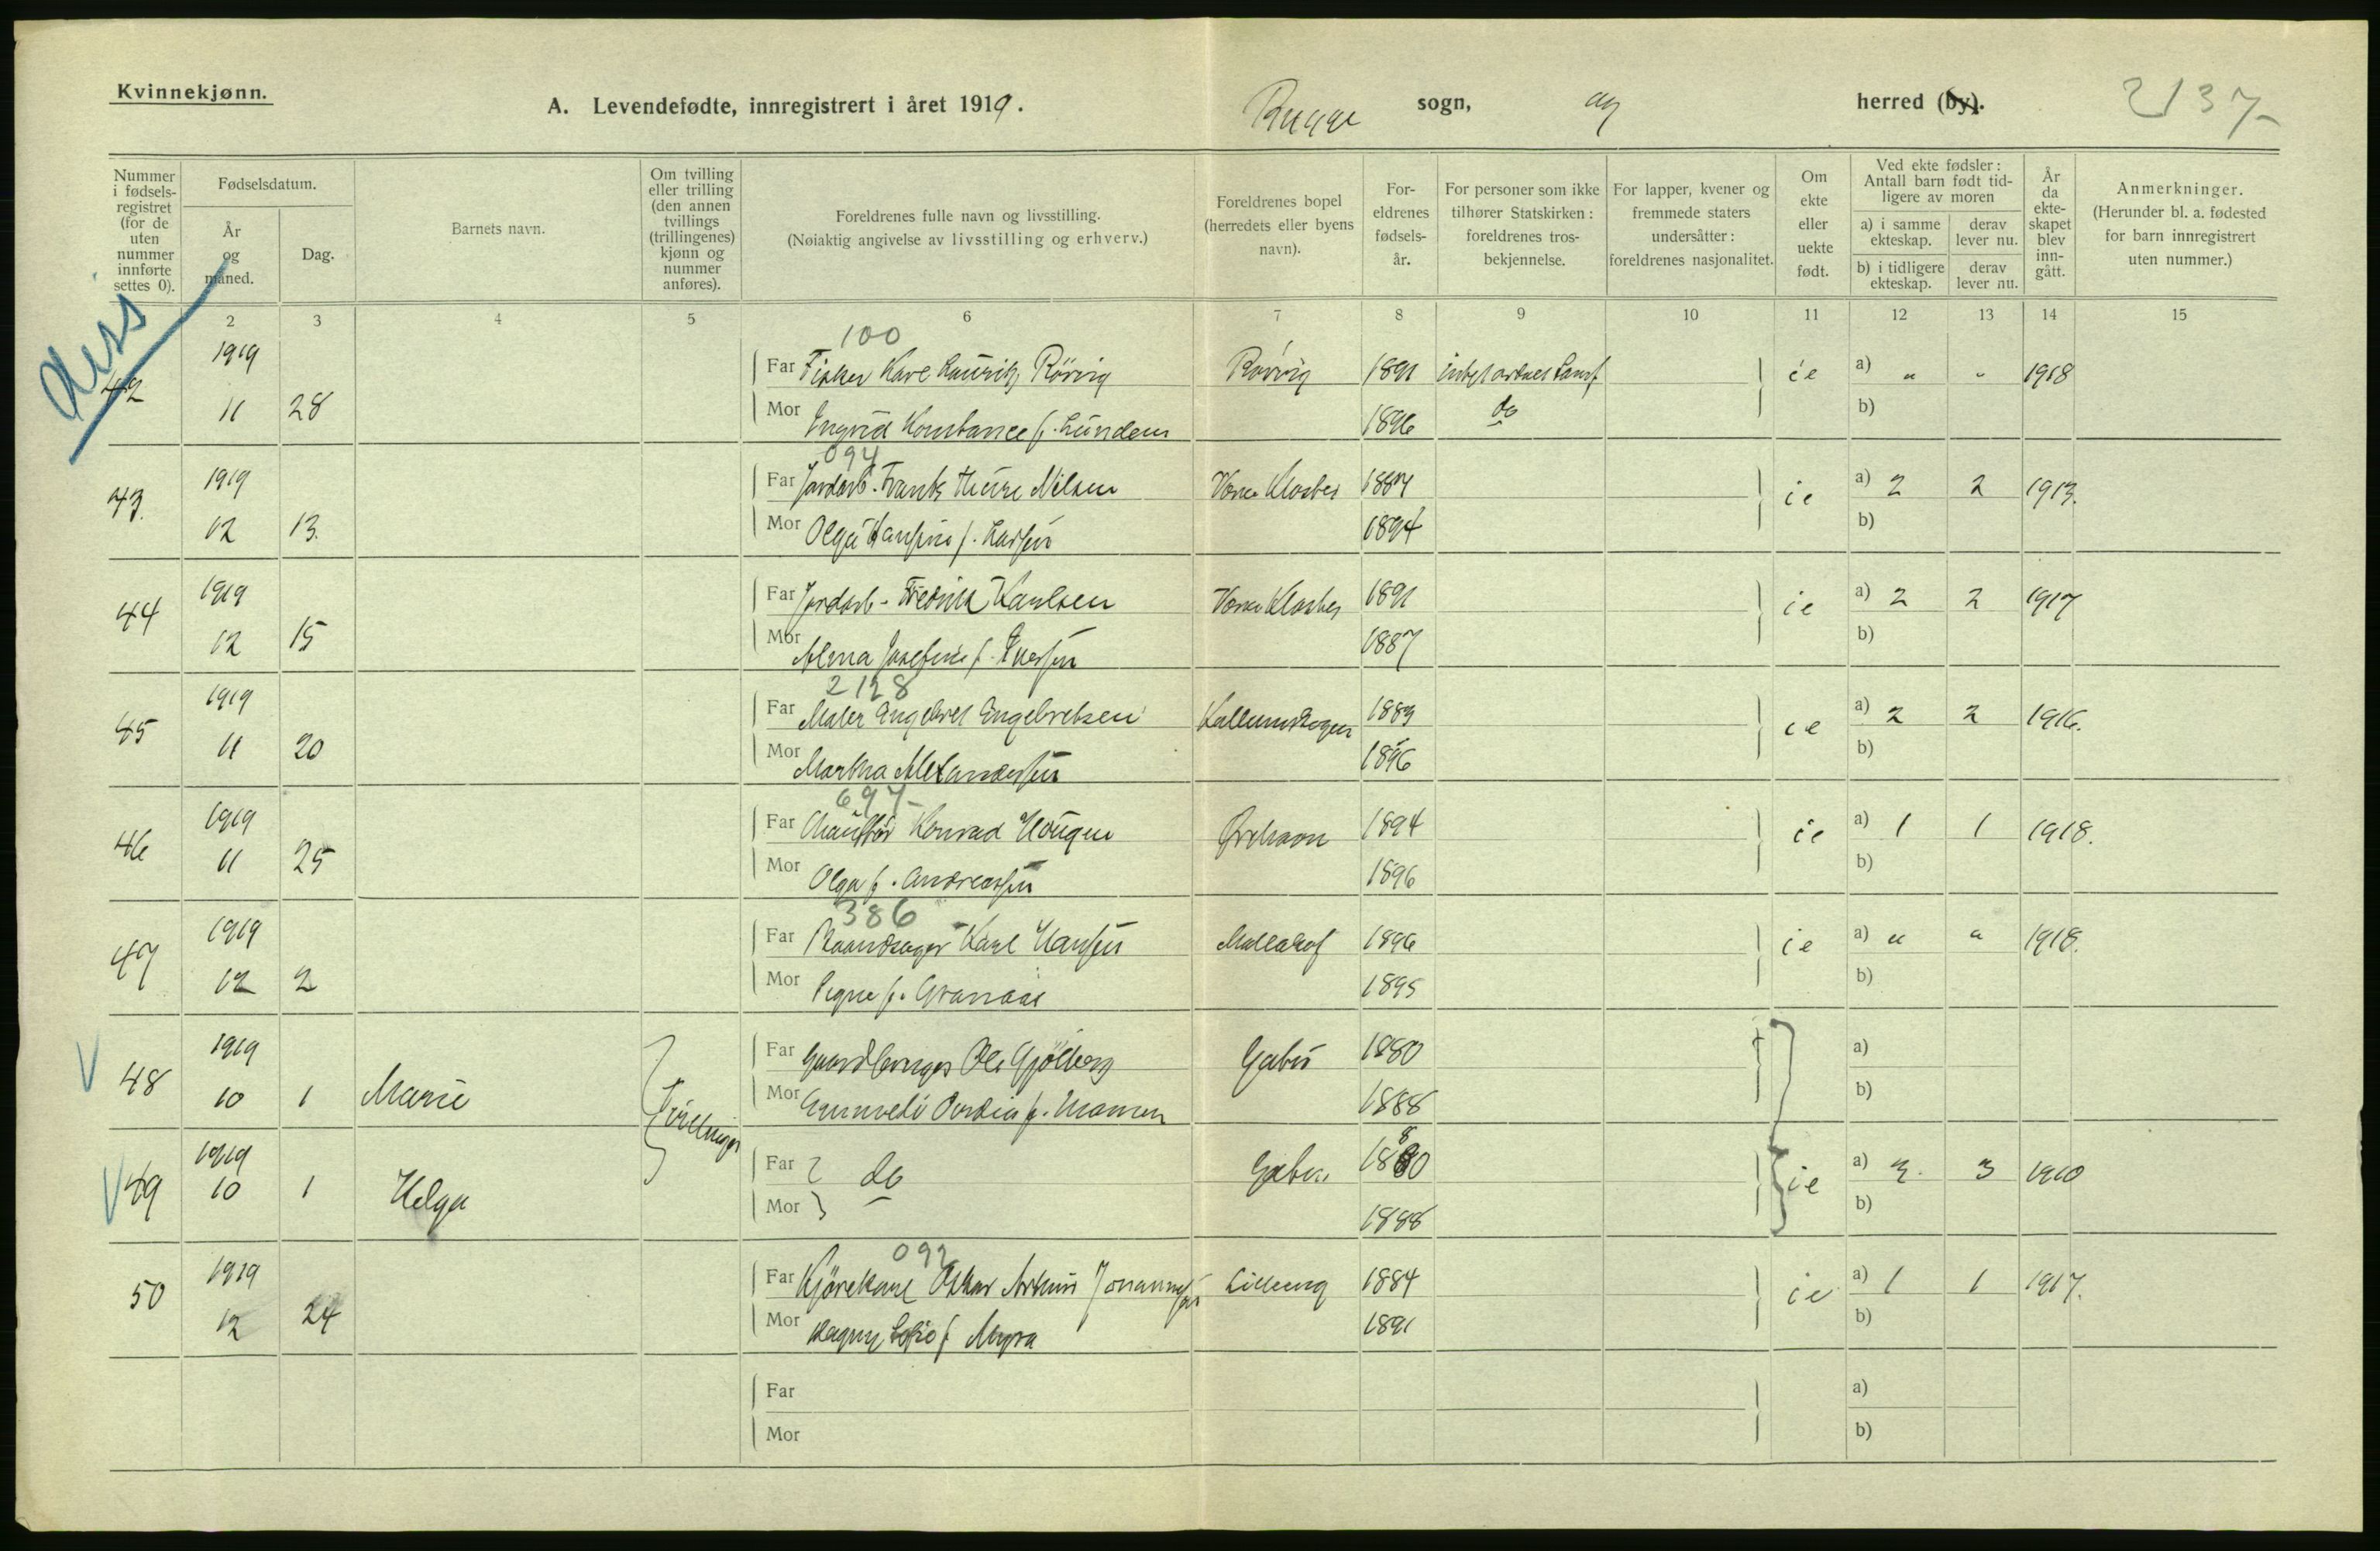 Kvinnekjønn.
A. Levendefødte, innregistrert i året 1919.
Rygge sogn, og herred (by).
2137-
Nummer i fødsels-registret (for de uten nummer innførte settes 0).
Fødselsdatum.
År og måned.
Dag.
Barnets navn.
Om tvilling eller trilling (den annen tvillings (trillingenes) kjønn og nummer anføres).
Foreldrenes fulle navn og livsstilling.
(Nøiaktig angivelse av livsstilling og erhverv.)
Foreldrenes bopel (herredets eller byens navn).
For-eldrenes fødsels-år.
For personer som ikke tilhører Statskirken: foreldrenes tros-bekjennelse.
For lapper, kvener og fremmede staters undersåtter: foreldrenes nasjonalitet.
Om ekte eller uekte født.
Ved ekte fødsler: Antall barn født tid-ligere av moren
a) i samme ekteskap.
derav lever nu.
b) i tidligere ekteskap.
derav lever nu.
År da ekte-skapet blev inn-gått.
Anmerkninger.
(Herunder bl. a. fødested for barn innregistrert uten nummer.)
2 3 4 5 6 7 8 9 10 11 12 13 14 15
Diss
100
42 1919 Far Fisker Karl Lauritz Rörvig Rörvig 1891 ie a) " " 1918
11 28 Mor Ingrid Konstance f. Lunden 1896 do b)
094
43. 1919 Far Jordarb. Frants Thure Nilsen Værne Kloster 1887 ie a) 2 2 1913.
12 13. Mor Olga Hansine f. Larsen 1894 b)
44 1919 Far Jordarb. Fredrik Karlsen Værne Kloster 1891 ie a) 2 2 1917
12 15 Mor Alma Josefine f. Iversen 1887 b)
2128
45 1919 Far Maler Engebret Engebretsen Kallumskogen 1889 ie a) 2 2 1916.
11 20 Mor Martha Alexandersen 1896 b)
697-
46 1919 Far Chauffør Konrad Hougen 1894 ie a) 1 1 1918.
11 25 Mor Olga f. Andreassen 1896 b)
386
47 1919 Far Karl Hansen 1896 ie a) " " 1918.
12 2 Mor Signe f. Granaas 1895 b)
48 1919 Far Ole Gjölberg Gabes 1880 a)
10 1 Marie Tvillinger Mor f. 1888 b)
49 1919 Far do 1880 ie a) 3 3 1910
10 1 Helga Mor 1888 b)
092
50 1919 Far Kjörekarl Oskar Arthur Johannesen Lilleeng 1884 ie a) 1 1 1917.
12 24 Mor Dagny Sofie f. Myra 1891 b)
Far a)
Mor b)